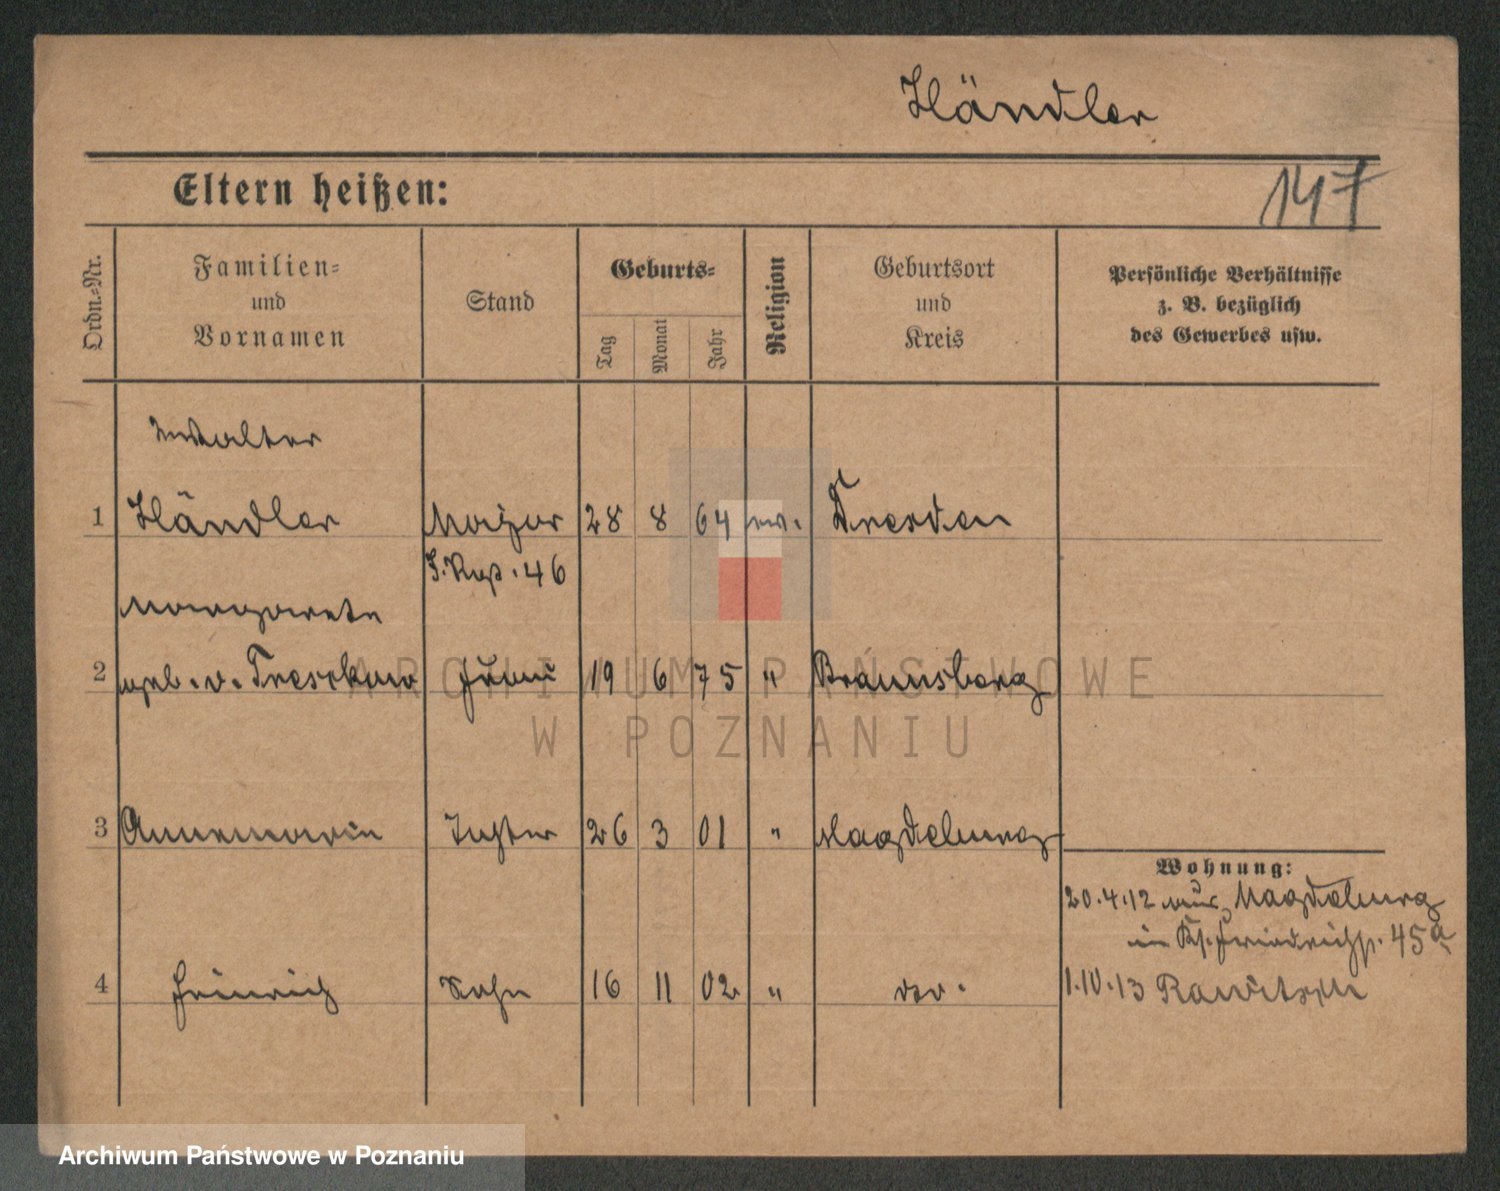 Händler
147
Eltern heißen:
Ordn.-Nr.
Familien-
und
Vornamen
Stand
Geburts-
Tag
Monat
Jahr
Religion
Geburtsort
und
Kreis
Persönliche Verhältnisse
z. B. bezüglich
des Gewerbes usw.
Walter
1 Händler Major 28 8 64 ev. Dresden
J. Rgt. 46
Margarete
2 geb. v. Tresckow Frau 19 6 75 " Braunsberg
ARCHIWUM PAŃSTWOWE
W POZNANIU
3 Annemarie Tochter 26 3 01 " Magdeburg
Wohnung:
20.4.12 aus Magdeburg
in Ks. Friedrichstr. 45a
4 Heinrich Sohn 16 11 02 " do.
1.10.13 Rawitsch
Archiwum Państwowe w Poznaniu